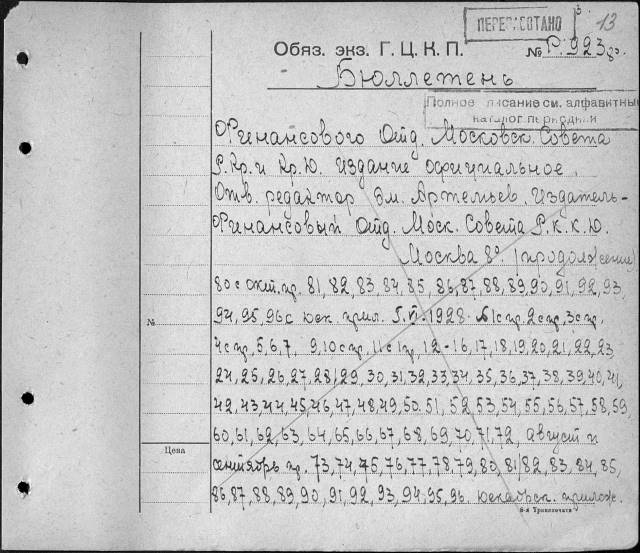 13
ПЕРЕПИСАНО
Обяз. экз. Г. Ц. К. П.
№ Р. 923 8°
Бюллетень
Полное описание см. алфавитный
каталог периодики
Финансового Отд. Московск. Совета
Р. Кр. и Кр. Ю. Издание официальное.
Отв. редактор Эм. Артемьев. Издатель-
Финансовый Отд. Моск. Совета Р. К. К. Ю.
Москва 8° (продолжение)
80 с окт. пр. 81, 82, 83, 84, 85, 86, 87, 88, 89, 90, 91, 92, 93
94, 95, 96 с дек. прил. 1928 1 с пр. 2 с пр. 3 с пр.
4 с пр. 5, 6, 7, 9, 10 с пр. 11 с пр, 12-16, 17, 18, 19, 20, 21, 22, 23
№
24, 25, 26, 27, 28, 29, 30, 31, 32, 33, 34, 35, 36, 37, 38, 39, 40, 41,
42, 43, 44, 45, 46, 47, 48, 49, 50, 51, 52, 53, 54, 55, 56, 57, 58, 59
60, 61, 62, 63, 64, 65, 66, 67, 68, 69, 70, 71, 72, август и
Цена
сентябрь пр. 73, 74, 75, 76, 77, 78, 79, 80, 81, 82, 83, 84, 85,
86, 87, 88, 89, 90, 91, 92, 93, 94, 95, 96. декабрьск. прилож.
6-я Транспечати